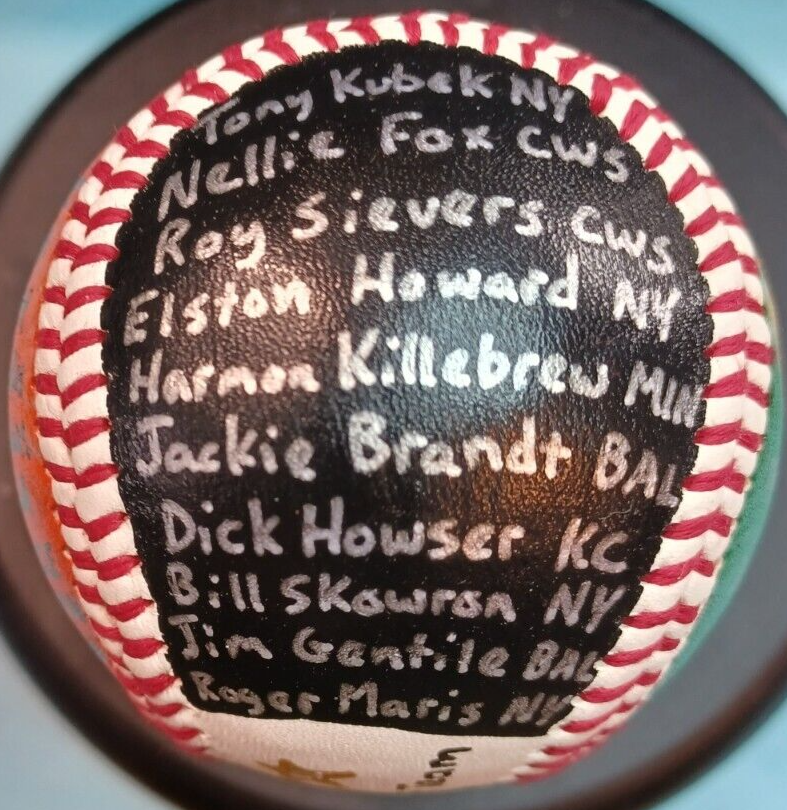 Tony Kubek NY
Nellie Fox CWS
Roy Sievers CWS
Elston Howard NY
Harmon Killebrew MIN
Jackie Brandt BAL
Dick Howser KC
Bill Skowron NY
Jim Gentile BAL
Roger Maris NY